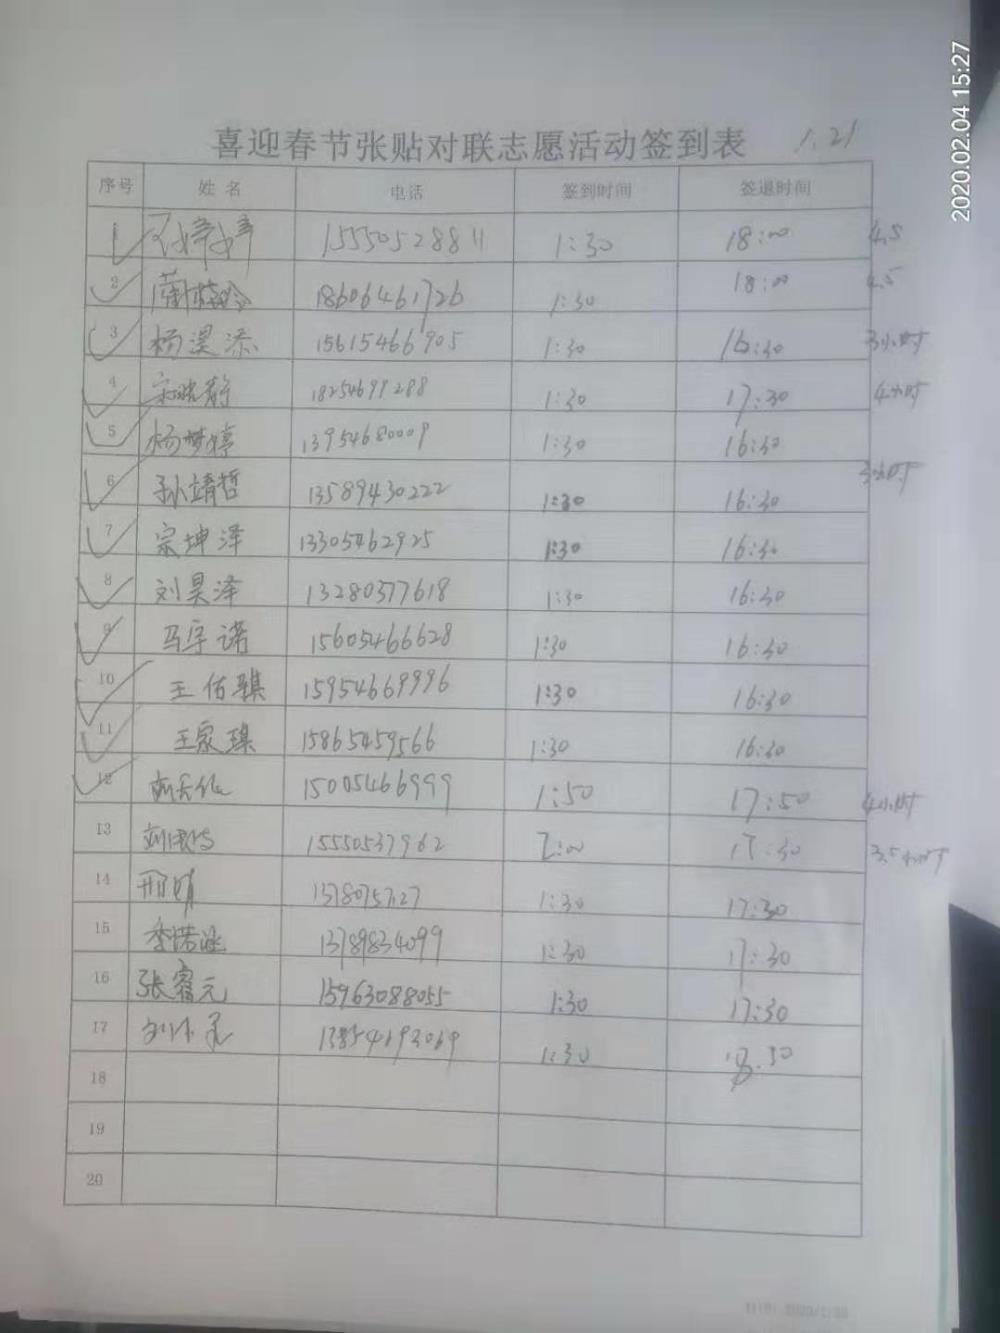 2020.02.04 15:27
喜迎春节张贴对联志愿活动签到表 1.21
序号 姓名 电话 签到时间 签退时间
1 15550528811 1:30 18:00 4.5
2 18606461726 1:30 18:00 4.5
3 杨昊添 15615466905 1:30 16:30 3小时
4 18254699288 1:30 17:30 4小时
5 杨梦婷 13954680009 1:30 16:30
6 孙靖哲 13589430222 1:30 16:30 3小时
7 宗坤泽 13305462925 1:30 16:30
8 刘昊泽 13280377618 1:30 16:30
9 马宇诺 15605466628 1:30 16:30
10 王佑骐 15954669996 1:30 16:30
11 王家琪 15865459566 1:30 16:30
12 15005466999 1:50 17:50 4小时
13 15550537962 2:00 17:30 3.5小时
14 1:30 17:30
15 李诺涵 13789834099 1:30 17:30
16 张睿元 15963088055 1:30 17:30
17 1:30
18
19
20